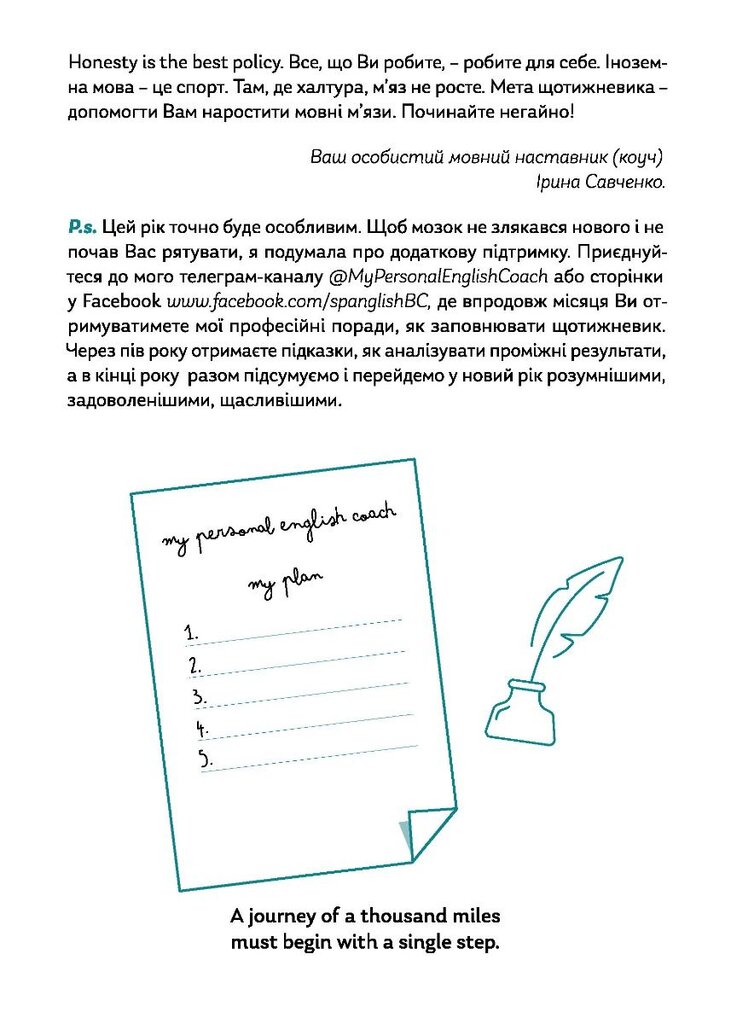 Honesty is the best policy. Все, що Ви робите, – робите для себе. Інозем-
на мова – це спорт. Там, де халтура, м’яз не росте. Мета щотижневика –
допомогти Вам наростити мовні м’язи. Починайте негайно!
Ваш особистий мовний наставник (коуч)
Ірина Савченко.
P.s. Цей рік точно буде особливим. Щоб мозок не злякався нового і не
почав Вас рятувати, я подумала про додаткову підтримку. Приєднуй-
теся до мого телеграм-каналу @MyPersonalEnglishCoach або сторінки
у Facebook www.facebook.com/spanglishBC, де впродовж місяця Ви от-
римуватимете мої професійні поради, як заповнювати щотижневик.
Через пів року отримаєте підказки, як аналізувати проміжні результати,
а в кінці року разом підсумуємо і перейдемо у новий рік розумнішими,
задоволенішими, щасливішими.
my personal english coach
my plan
1.
2.
3.
4.
5.
A journey of a thousand miles
must begin with a single step.